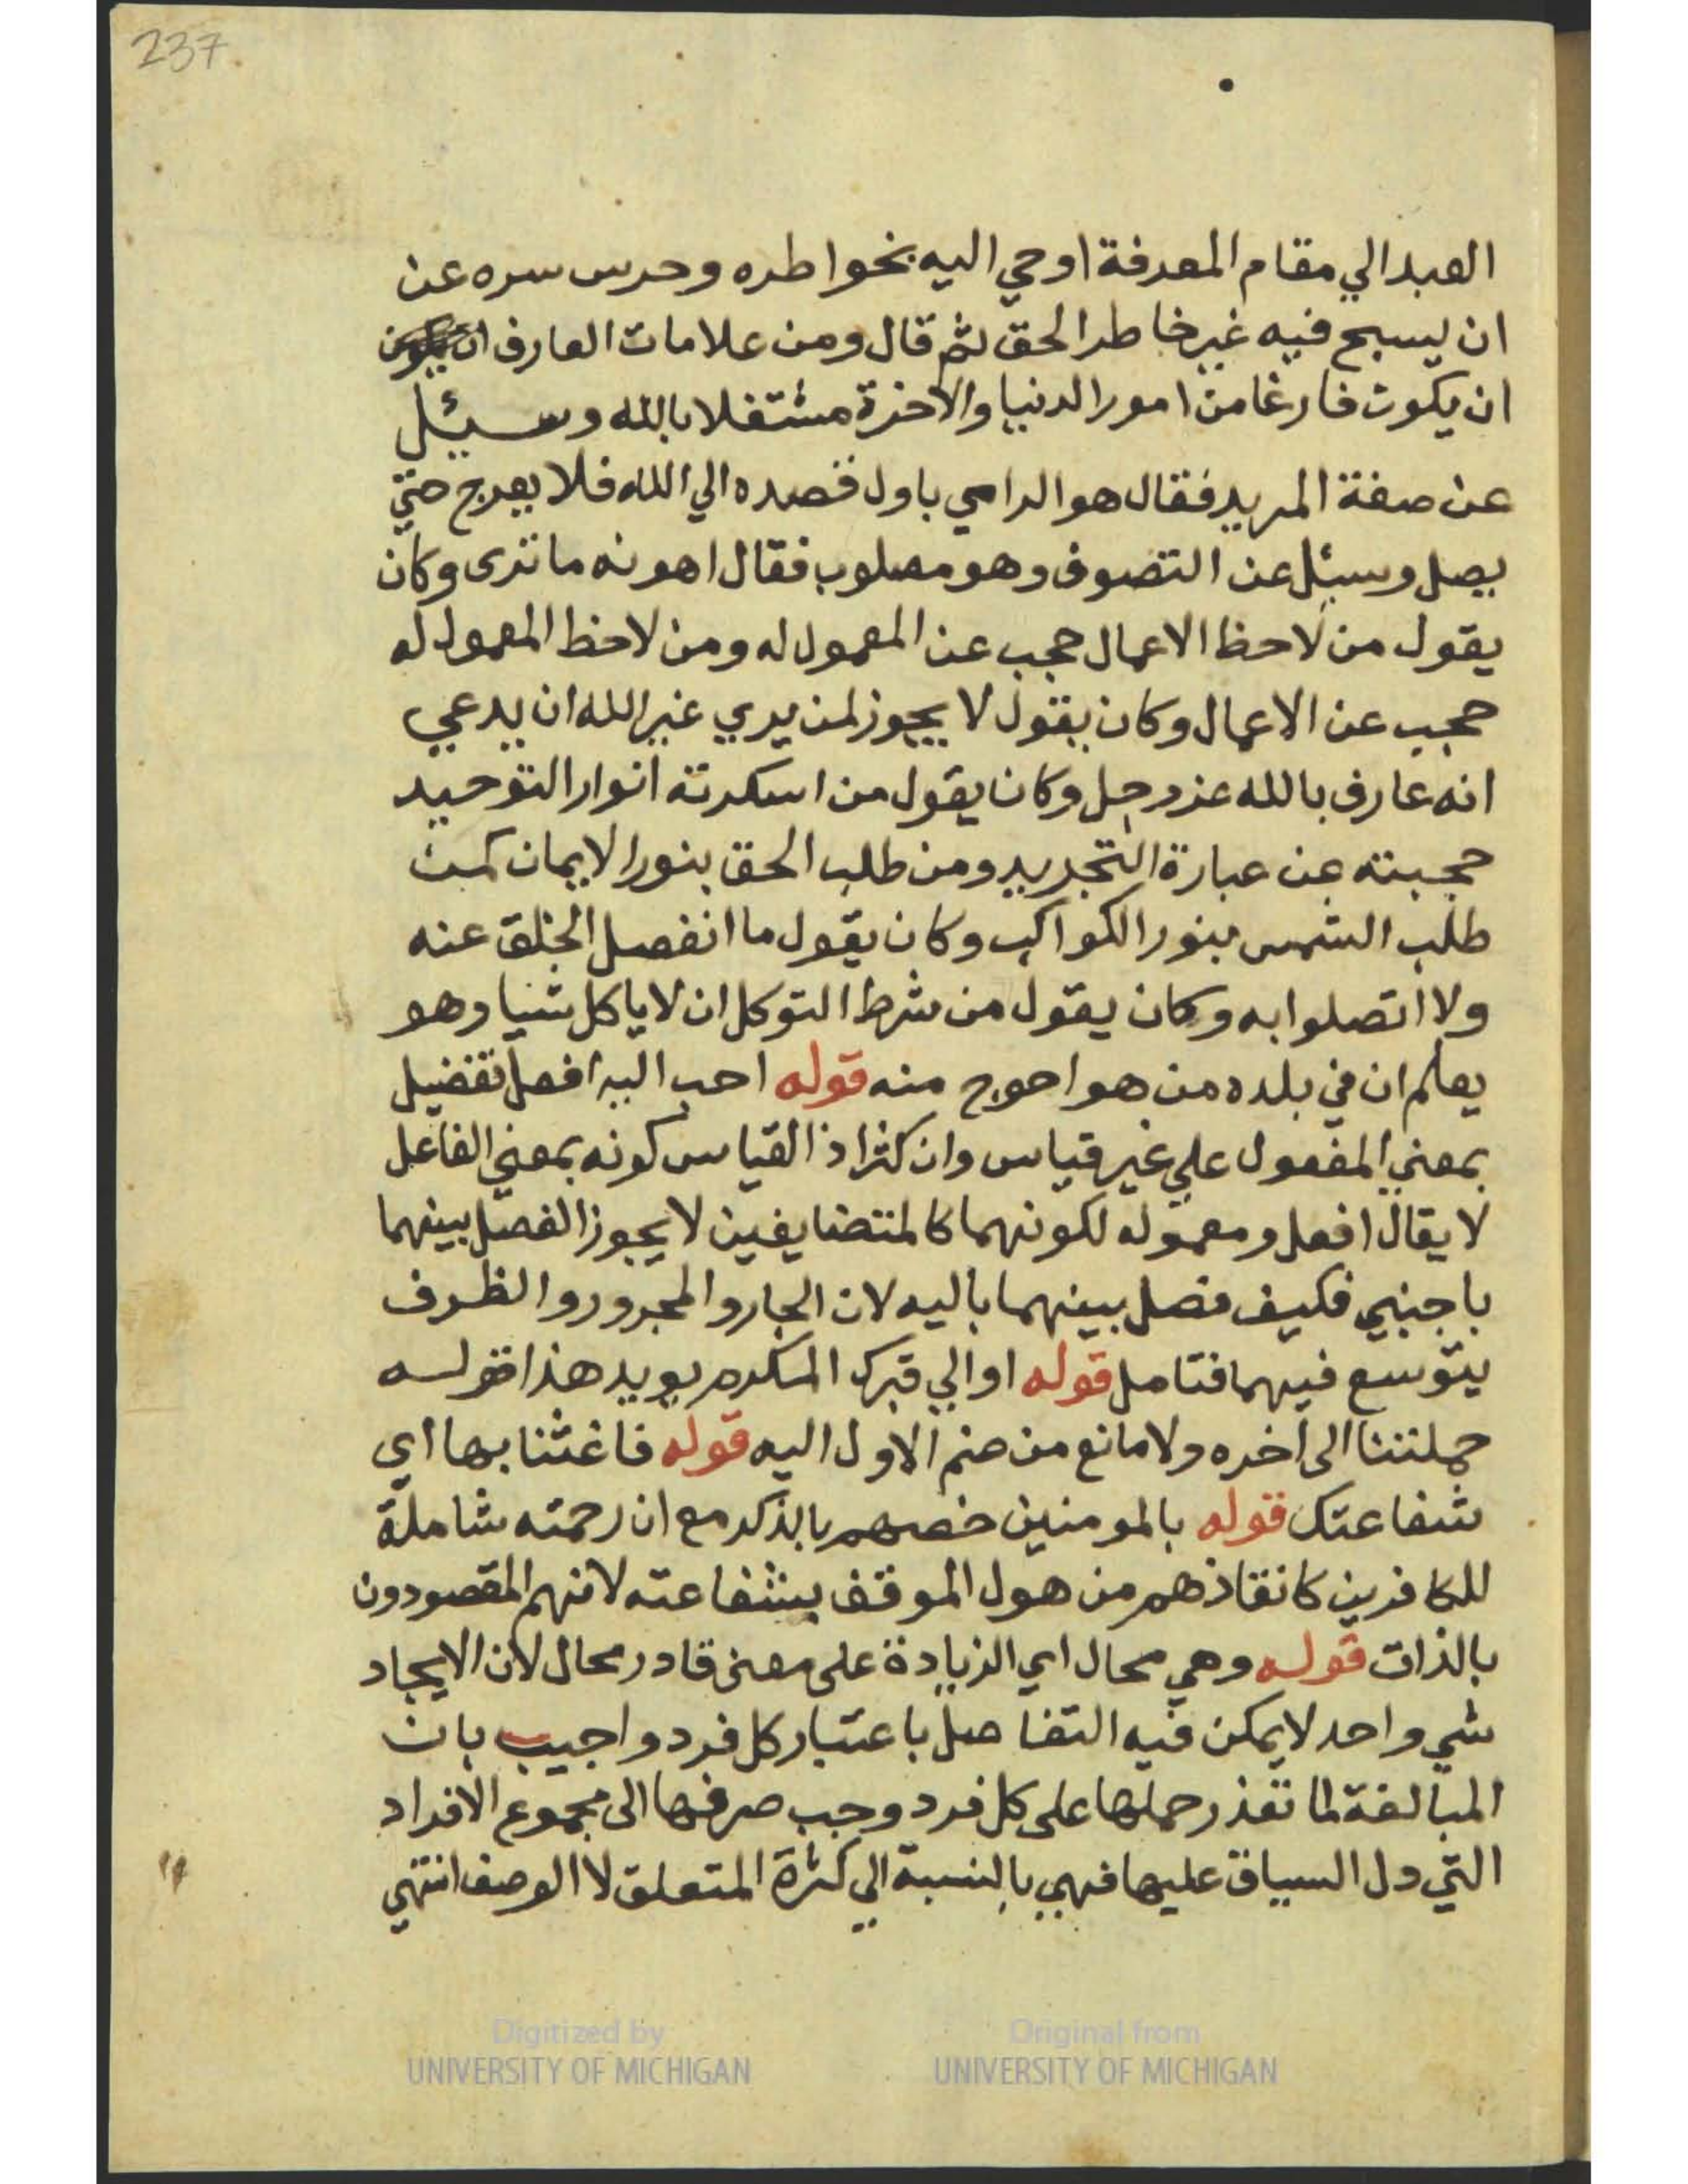 237.
العبد الي مقام المعرفة اوحي اليه بخواطره وحرس سره عن
ان يسبح فيه غير خاطر الحق ثم قال ومن علامات العارف ان
ان يكون فارغا من امور الدنيا والآخرة مشتغلا بالله وسيئل
عن صفة المريد فقال هو الرامي باول قصده الي الله فلا يعرج حتي
يصل وسيئل عن التصوف وهو مصلوب فقال اهونه ما ترى وكان
يقول من لاحظ الاعمال حجب عن المعمول له ومن لاحظ المعمول له
حجب عن الاعمال وكان يقول لا يجوز لمن يري غير الله ان يدعي
انه عارف بالله عز وجل وكان يقول من اسكرته انوار التوحيد
حجبته عن عبارة التجريد ومن طلب الحق بنور الايمان كمن
طلب الشمس بنور الكواكب وكان يقول ما انفصل الخلق عنه
ولا اتصلوا به وكان يقول من شرط التوكل ان لا ياكل شيا وهو
يعلم ان في بلده من هو احوج منه قوله احب اليه افعل تفضيل
بمعني المفعول علي غير قياس وان كثر اذ القياس كونه بمعني الفاعل
لا يقال افعل ومعموله لكونهما كالمتضايفين لا يجوز الفصل بينهما
باجنبي فكيف فصل بينهما باليه لان الجار والمجرور والظرف
يتوسع فيهما فتامل قوله او الي قبرك المكرم يويد هذا قوله
حملتنا الى اخره ولا مانع من ضم الاول اليه قوله فاغثنا بها اي
شفاعتك قوله بالمومنين خصهم بالذكر مع ان رحمته شاملة
للكافرين كانقاذهم من هول الموقف بشفاعته لانهم المقصودون
بالذات قوله وهي محال اي الزيادة على معنى قادر محال لان الايجاد
شي واحد لا يمكن فيه التفاضل باعتبار كل فرد واجيب بان
المبالغة لما تعذر حملها على كل فرد وجب صرفها الى مجموع الافراد
التي دل السياق عليها فهي بالنسبة الي كثرة المتعلق لا الوصف انتهي
Digitized by
UNIVERSITY OF MICHIGAN
Original from
UNIVERSITY OF MICHIGAN